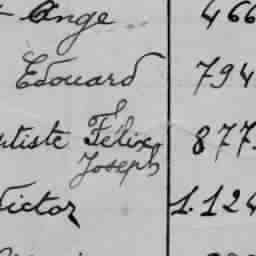 Ange 466
Edouard 794
tiste Félix 877
Joseph
Victor 1.124